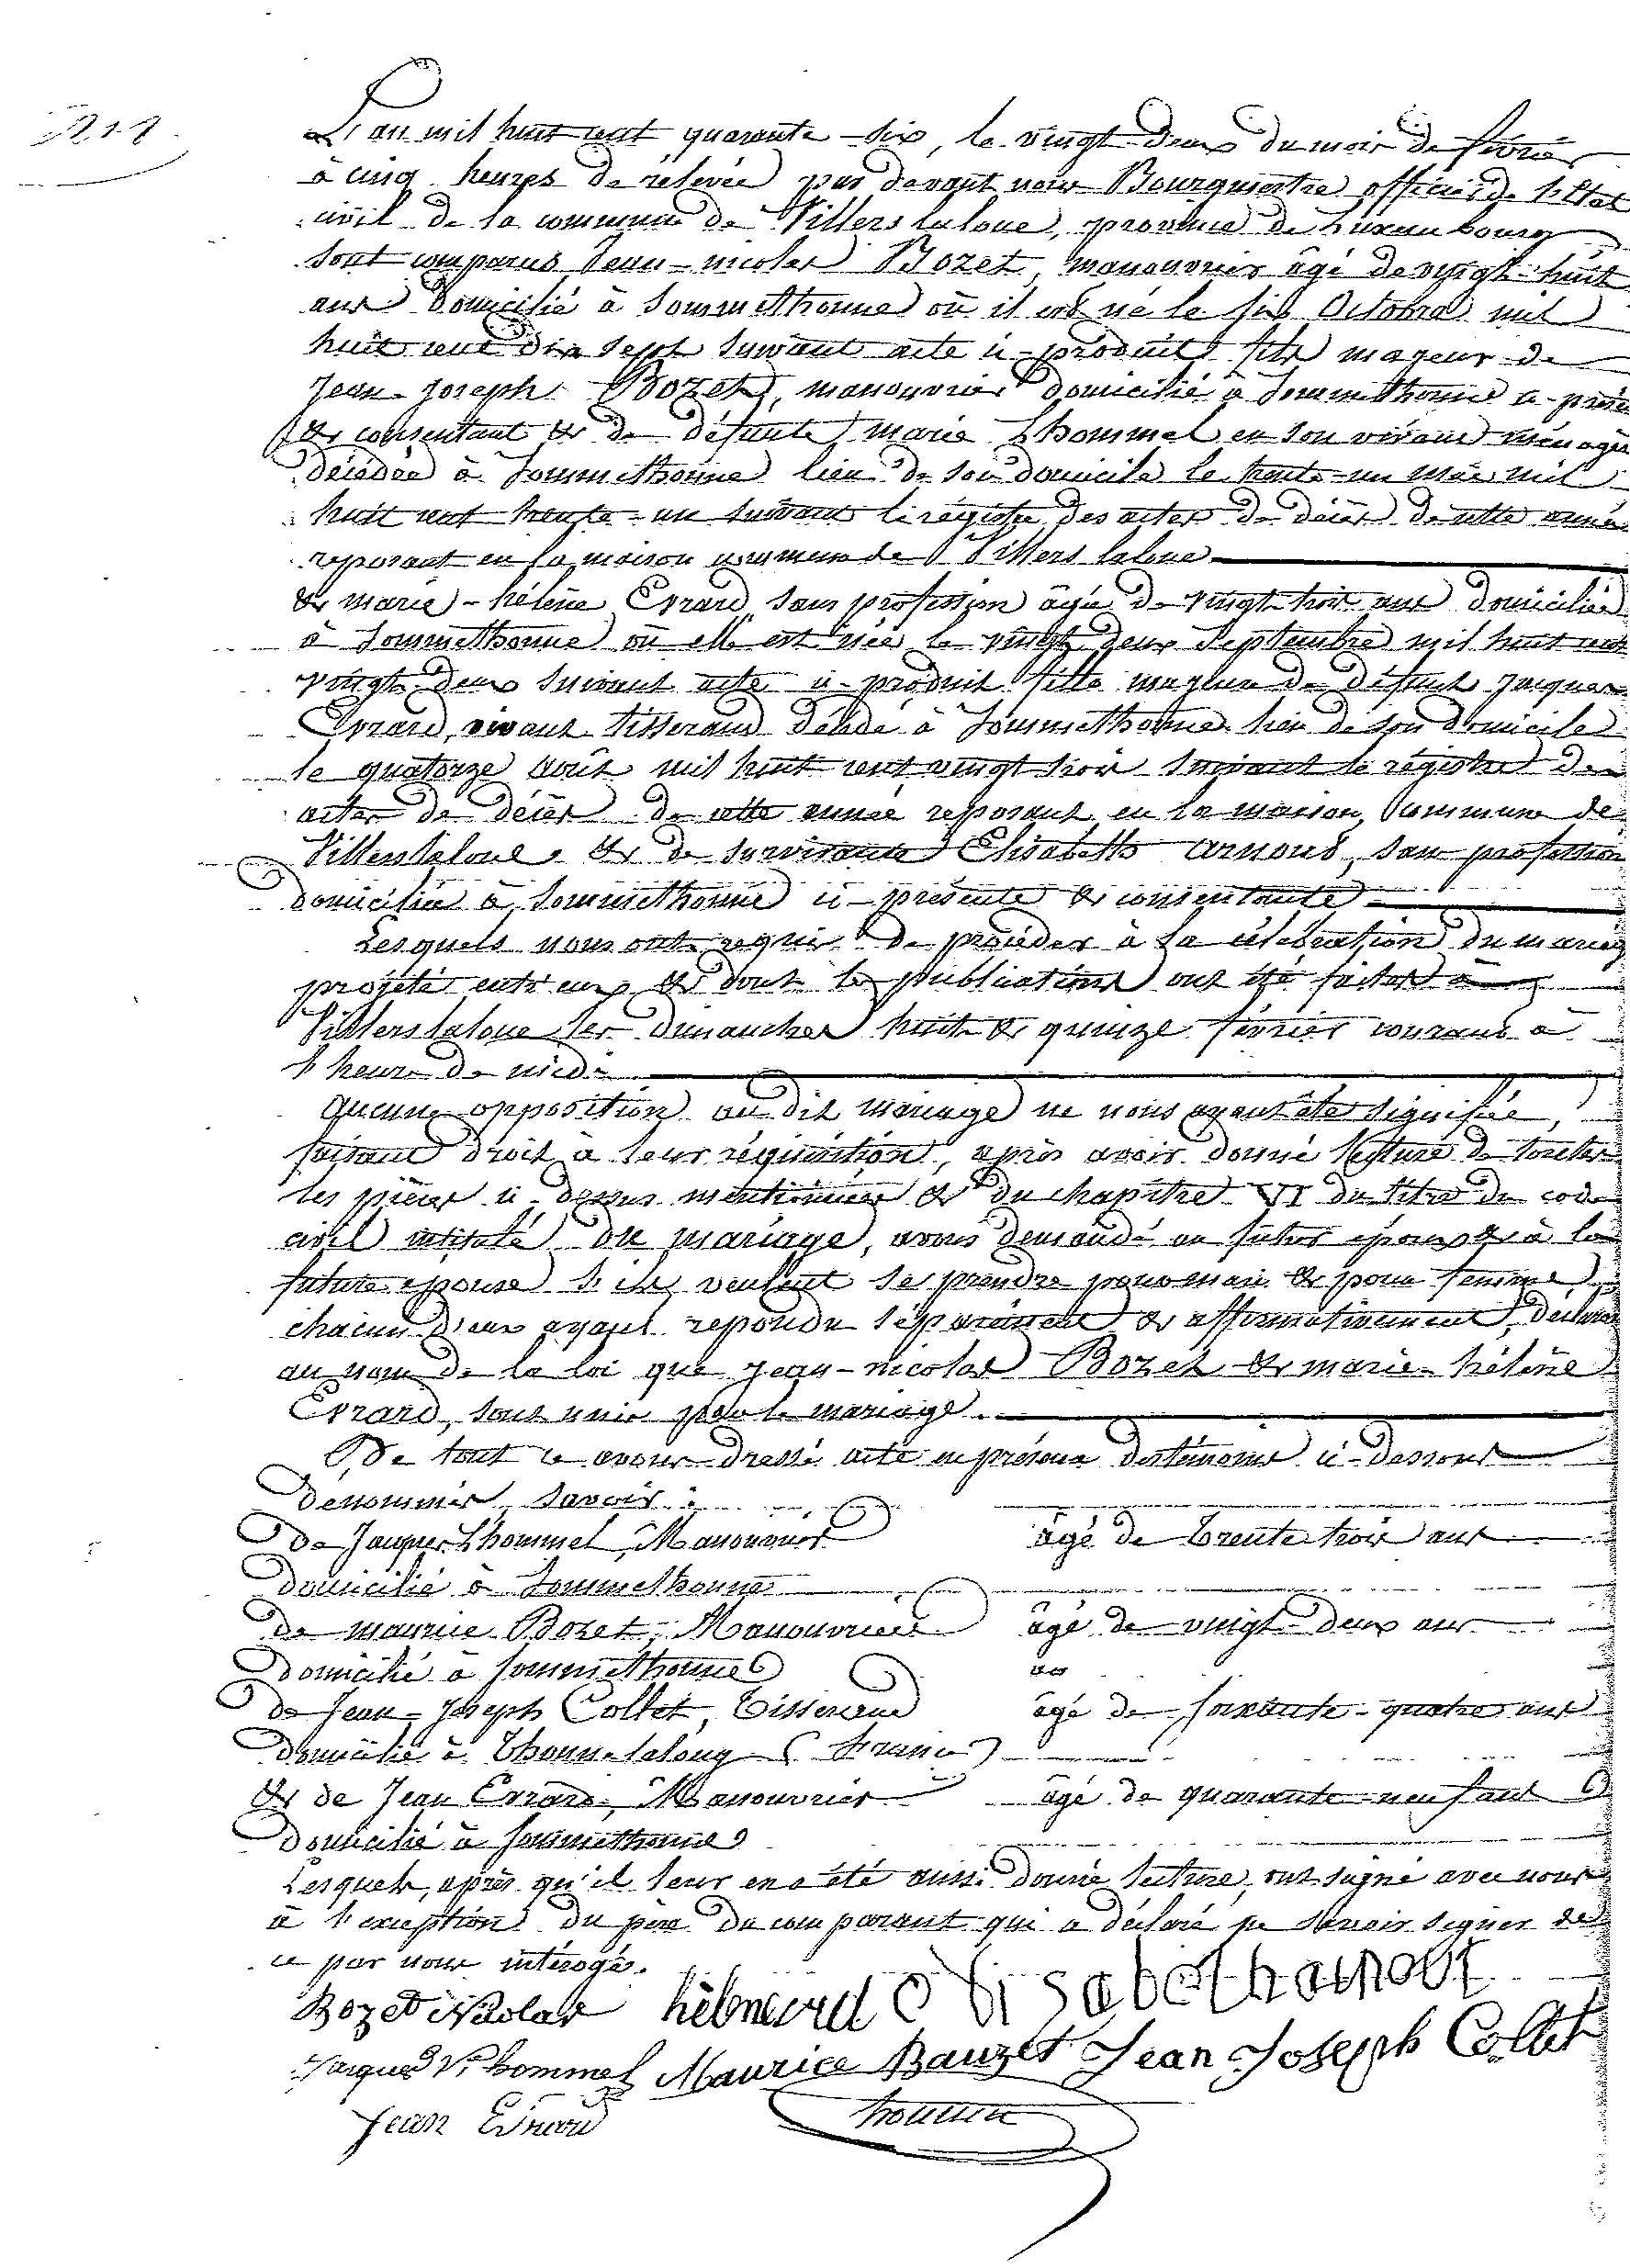 L'an mil huit cent quarante-six, le vingt-deux du mois de février
à cinq heures de rélevée par devant nous Bourgmestre officier de l'Etat
civil de la commune de Villers laloue, province de Luxembourg
sont comparus Jean-nicolas Bozet, manouvrier âgé de vingt-huit
ans domicilié à Sommethonne où il est né le six Octobre mil
huit cent dix sept suivant acte ci-produit, fils majeur de
Jean-Joseph Bozet, manouvrier domicilié à Sommethonne ci-présen
& consentant & de défunte marie Lhommel en son vivant ménagère
décédée à Sommethonne lieu de son domicile le trente-un mai mil
huit cent trente-un suivant le régistre des actes de décès de cette année
reposant en la maison commune de Villers laloue
& marie-hélène Evrard, sans profession âgée de vingt-trois ans domiciliée
à Sommethonne où elle est née le vingt deux Septembre mil huit cent
vingt-deux suivant acte ci-produit fille majeure de défunt Jacques
Evrard, vivant tisserand décédé à Sommethonne lieu de son domicile
le quatorze août mil huit cent vingt trois suivant le régistre des
actes de décès de cette année reposant en la maison commune de
Villers laloue, & de survivante Elisabeth Arnoud, sans profession
domiciliée à Sommethonne ci-présente & consentante
Lesquels nous ont requis de procéder à la célébration du mariag
projété entr'eux & dont les publications ont été faites à
Villers laloue les dimanches huit & quinze février courant à
l'heure de midi
Aucune opposition au dit mariage ne nous ayant été signifiée,
faisant droit à leur réquisition, après avoir donné lecture de toutes
les pièces ci-dessus mentionnées & du chapitre VI du titre du code
civil intitulé du mariage, avons demandé au futur époux & à la
future épouse s'ils veulent se prendre pour mari & pour femme,
chacun d'eux ayant repondu séparément & affirmativement, déclarons
au nom de la loi que Jean-nicolas Bozet & marie-hélène
Evrard, sont unis par le mariage.
De tout ce avons dressé acte en présence des témoins ci-dessous
denommés, savoir:
de Jacques Lhommel, Manouvrier âgé de trente trois ans
domicilié à Sommethonne
de maurice Bozet, Manouvrier âgé de vingt-deux ans
domicilié à Sommethonne
de Jean-Joseph Collet, Tisserand âgé de soixante-quatre ans
domicilié à Thonnelalong (France)
& de Jean Evrard, Manouvrier âgé de quarante-neuf ans
domicilié à Sommethonne
Lesquels, après qu'il leur en a été aussi donné lecture, ont signé avec nous
à l'exception du père du comparant qui a déclaré ne savoir signer de
ce par nous intérogés.
Bozet Nicolas Elisabeth arnout
Jacques Lhommel Maurice Bauzet Jean Joseph Collet
Jean Evrard